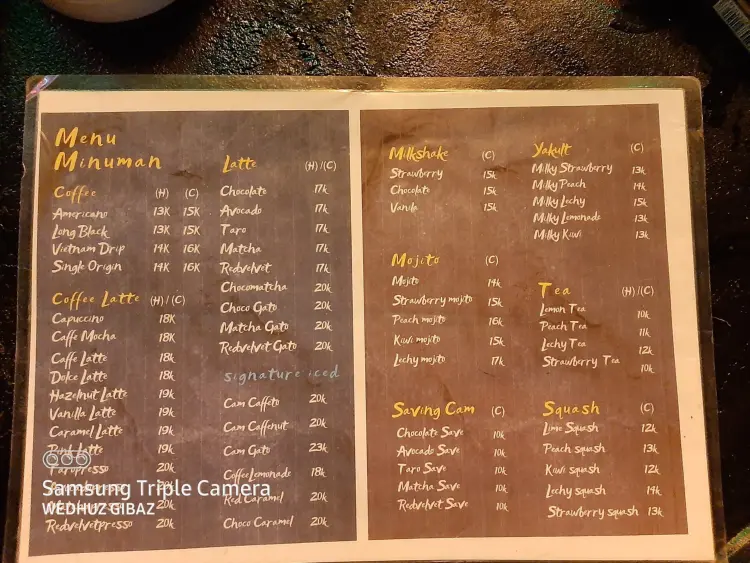 Menu
Minuman
Coffee (H) (C)
Americano 13K 15K
Long Black 13K 15K
Vietnam Drip 14K 16K
Single Origin 14K 16K
Coffee Latte (H)/(C)
Capuccino 18K
Caffe Mocha 18K
Caffe Latte 18k
Dolce Latte 18k
Hazelnut Latte 19k
Vanilla Latte 19k
Caramel Latte 19k
Pink Latte 19k
Taropresso 20k
20k
20k
Redvelvetpresso 20k
Latte (H)/(C)
Chocolate 17k
Avocado 17k
Taro 17k
Matcha 17k
Redvelvet 17k
Chocomatcha 20k
Choco Gato 20k
Matcha Gato 20k
Redvelvet Gato 20k
signature iced
Cam Caffeto 20k
Cam Caffenut 20k
Cam Gato 23k
CoffeeLemonade 18k
Red Caramel 20k
Choco Caramel 20k
Milkshake (C)
Strawberry 15k
Chocolate 15k
Vanila 15k
Mojito (C)
Mojito 14k
Strawberry mojito 15k
Peach mojito 16k
Kiwi mojito 15k
Lechy mojito 17k
Saving Cam (C)
Chocolate Save 10k
Avocado Save 10k
Taro Save 10k
Matcha Save 10k
Redvelvet Save 10k
Yakult (C)
Milky Strawberry 13k
Milky Peach 14k
Milky Lechy 15k
Milky Lemonade 13k
Milky Kiwi 13k
Tea (H)/(C)
Lemon Tea 10k
Peach Tea 11k
Lechy Tea 12k
Strawberry Tea 10k
Squash (C)
Lime Squash 12k
Peach squash 13k
Kiwi squash 12k
Lechy squash 14k
Strawberry squash 13k
Samsung Triple Camera
WEDHUZ GIBAZ